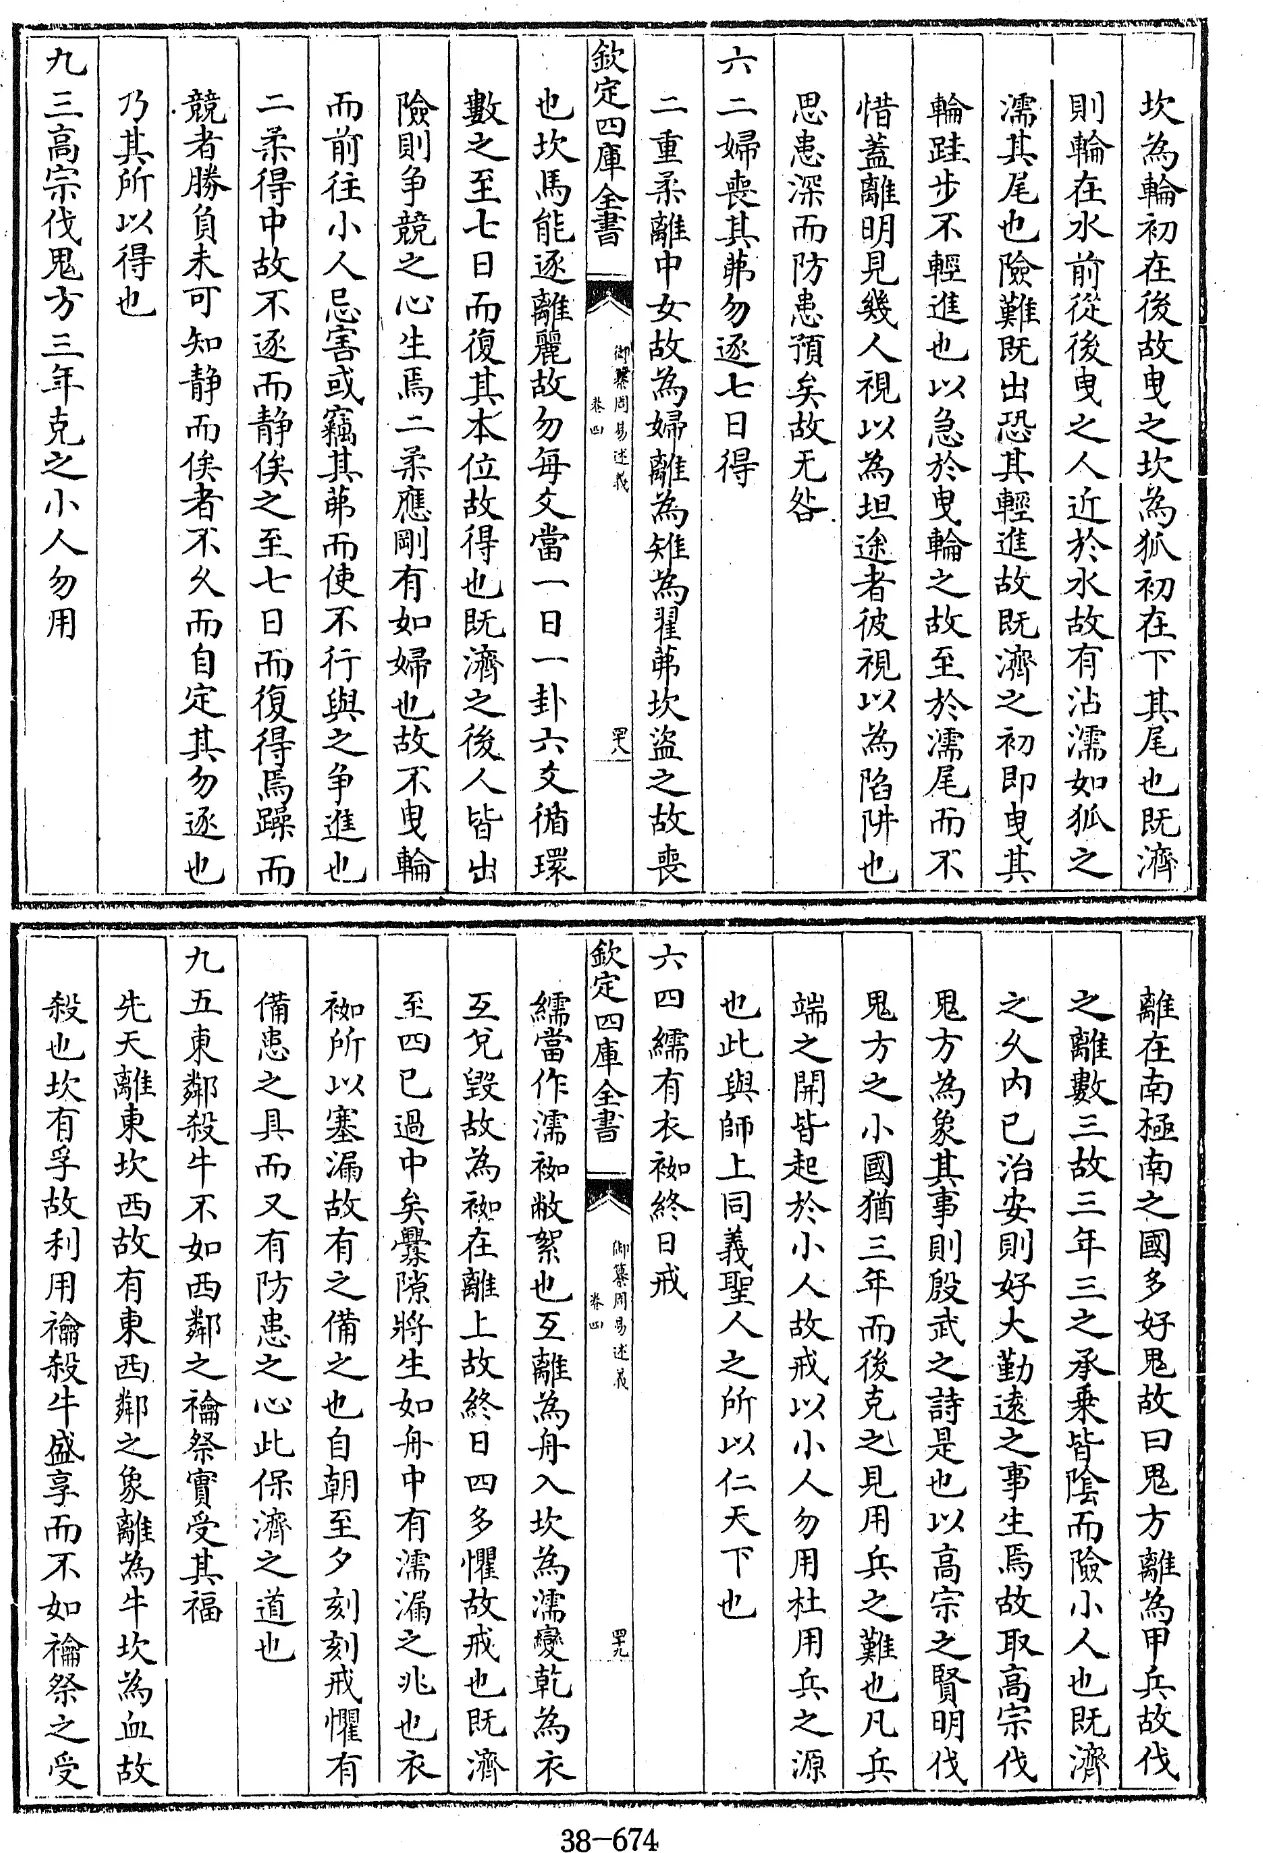 坎為輪初在後故曳之坎為狐初在下其尾也既濟
則輪在水前從後曳之人近於水故有沾濡如狐之
濡其尾也險難既出恐其輕進故既濟之初即曳其
輪跬步不輕進也以急於曳輪之故至於濡尾而不
惜蓋離明見幾人視以為坦途者彼視以為陷阱也
思患深而防患預矣故无咎
六二婦喪其茀勿逐七日得
二重柔離中女故為婦離為雉為翟茀坎盜之故喪
欽定四庫全書
御纂周易述義
卷四
四十八
也坎馬能逐離麗故勿每爻當一日一卦六爻循環
數之至七日而復其本位故得也既濟之後人皆出
險則争競之心生焉二柔應剛有如婦也故不曳輪
而前往小人忌害或竊其茀而使不行與之争進也
二柔得中故不逐而静俟之至七日而復得焉躁而
競者勝負未可知静而俟者不久而自定其勿逐也
乃其所以得也
九三高宗伐鬼方三年克之小人勿用
離在南極南之國多好鬼故曰鬼方離為甲兵故伐
之離數三故三年三之承乗皆陰而險小人也既濟
之久内已治安則好大勤逺之事生焉故取髙宗伐
鬼方為象其事則殷武之詩是也以高宗之賢明伐
鬼方之小國猶三年而後克之見用兵之難也凡兵
端之開皆起於小人故戒以小人勿用杜用兵之源
也此與師上同義聖人之所以仁天下也
六四繻有衣袽終日戒
欽定四庫全書
御纂周易述義
卷四
四十九
繻當作濡袽敝絮也互離為舟入坎為濡變乾為衣
互兌毀故為袽在離上故終日四多懼故戒也既濟
至四已過中矣釁隙將生如舟中有濡漏之兆也衣
袽所以塞漏故有之備之也自朝至夕刻刻戒懼有
備患之具而又有防患之心此保濟之道也
九五東鄰殺牛不如西鄰之禴祭實受其福
先天離東坎西故有東西鄰之象離為牛坎為血故
殺也坎有孚故利用禴殺牛盛享而不如禴祭之受
38-674